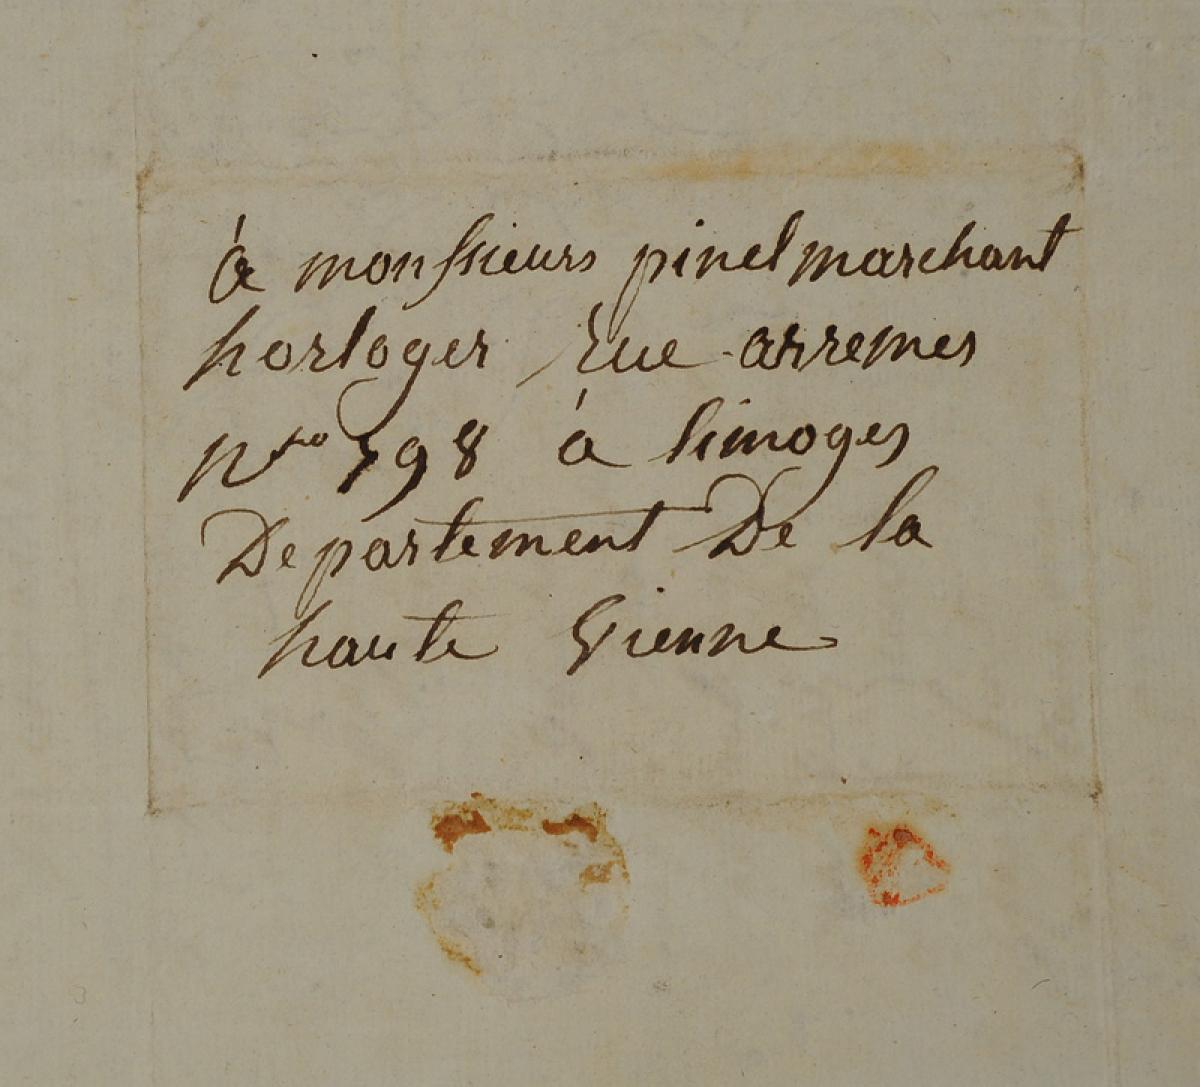 à monsieurs pinel marchant
horloger Rue arremes
Nro 798 à limoges
Departement De la
haute Vienne